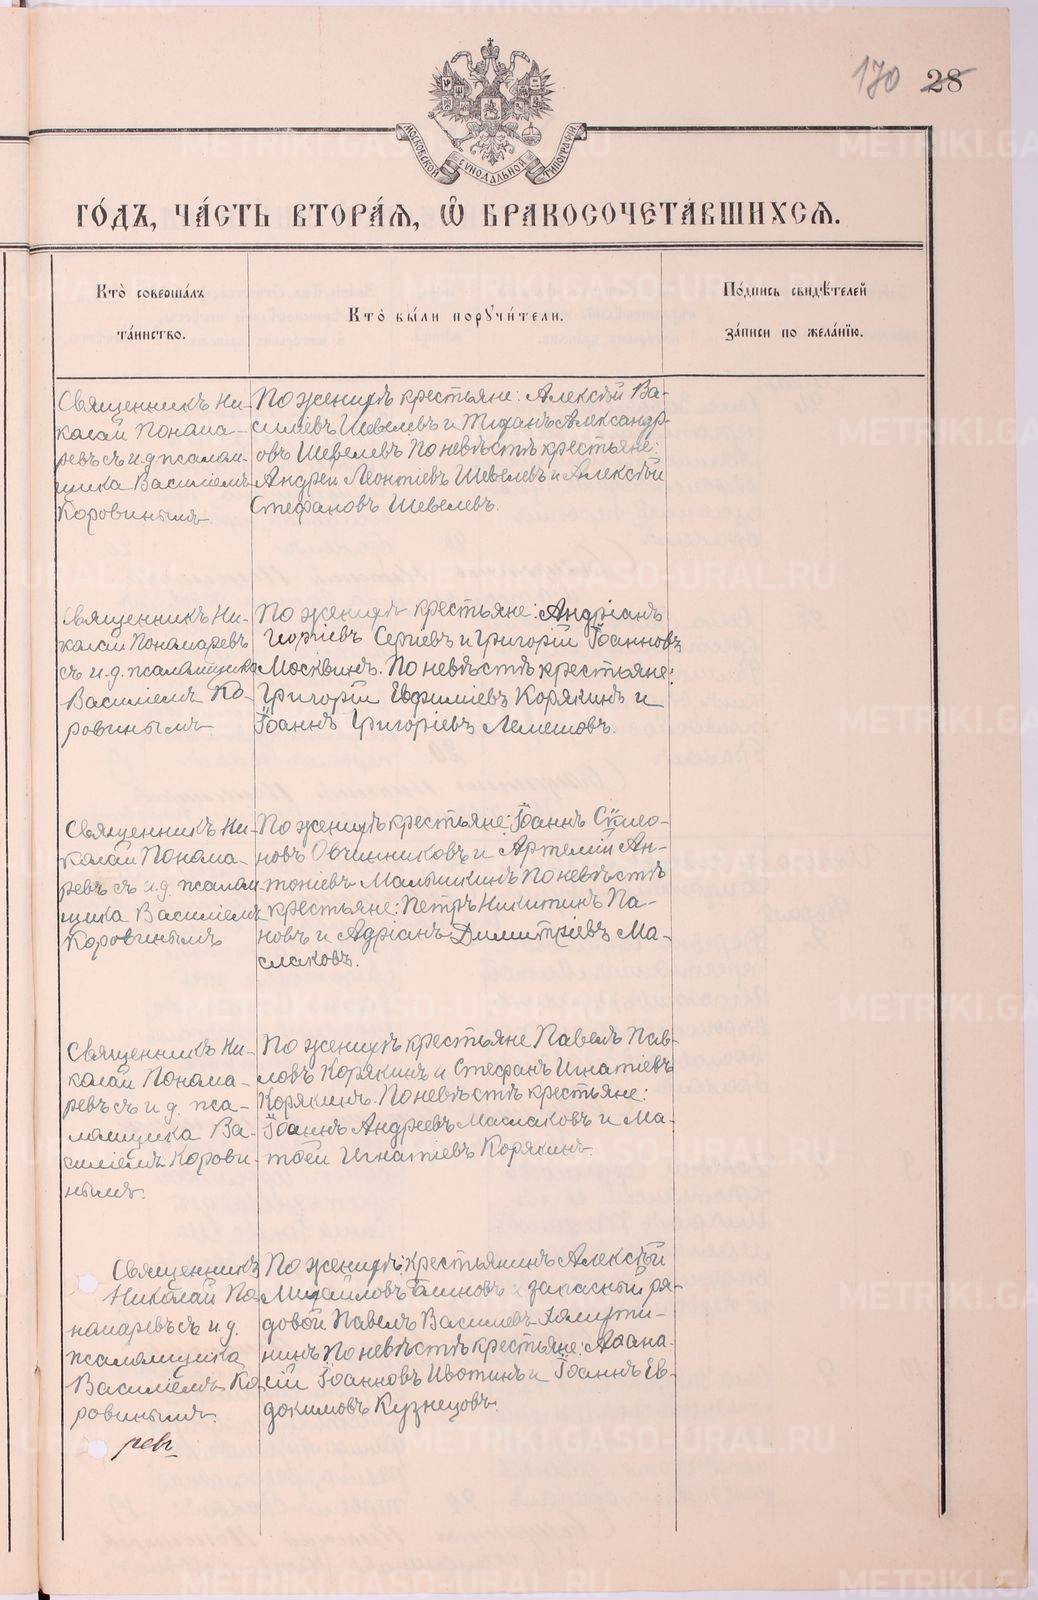 170 28
МОСКОВСКОЙ СѴНОДАЛЬНОЙ ТИПОГРАФІИ
ГО́ДЪ, ЧА́СТЬ ВТОРА́Я, Ѽ БРАКОСОЧЕТА́ВШИХСЯ.
Кто̀ соверша́лъ
та́инство.
Кто̀ бы́ли порꙋчи́тели.
По́дпись свидѣ́телей
за́писи по жела́нїю.
Священникъ Ни-
колай Понома-
ревъ съ и.д. псалом-
щика Василіемъ
Коровинымъ
По женихѣ крестьяне: Алексѣй Ва-
силіевъ Шевелевъ и Александр-
овъ Шевелевъ По невѣстѣ крестьяне:
Андрей Леонтіевъ Шевелевъ и Алексѣй
Стефановъ Шевелевъ.
Священникъ Ни-
колай Пономаревъ
съ и.д. псаломщика
Василіемъ Ко-
ровинымъ.
По женихѣ крестьяне: Андріанъ
Георгіевъ Сергіевъ и Григорій Іоанновъ
Москвинъ. По невѣстѣ крестьяне:
Григорій Евфиміевъ Корякинъ и
Іоаннъ Григоріевъ Лемешовъ.
Священникъ Ни-
колай Понома-
ревъ съ и.д. псалом
щика Василіемъ
Коровинымъ
По женихѣ крестьяне: Іоаннъ
новъ Овчинниковъ и Артемій Ан-
тоніевъ Малышкинъ По невѣстѣ
крестьяне: Петръ Никитинъ Па-
новъ и Адріанъ Димитріевъ Ма-
слаковъ.
Священникъ Ни-
колай Понома-
ревъ съ и.д. пса-
ломщика Ва-
силіемъ Корови-
нымъ.
По женихѣ крестьяне Павелъ Пав-
ловъ Корякинъ и Стефанъ Игнатіевъ
Корякинъ. По невѣстѣ крестьяне:
Іоаннъ Андреевъ Маслаковъ и Ма-
твѣй Игнатіевъ Корякинъ.
Священникъ
Николай По-
номаревъ съ и.д.
псаломщика
Василіемъ Ко-
ровинымъ.
рев
По женихѣ: крестьянинъ Алексѣй
Михайловъ и запасный ря-
довой Павелъ Василіевъ
нинъ По невѣстѣ крестьяне: Аѳана-
сій Іоанновъ Ивотинъ и Іоаннъ Ев-
докимовъ Кузнецовъ.
METRIKI.GASO-URAL.RU